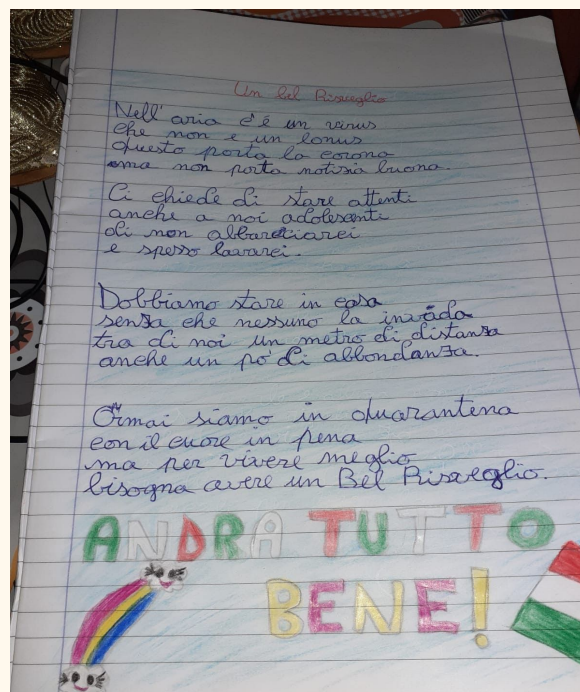 Un bel Risveglio
Nell' aria c'è un virus
che non è un bonus
questo porta la corona
ma non porta notizia buona.
Ci chiede di stare attenti
anche a noi adolesenti
di non abbracciarci
e spesso lavarci.
Dobbiamo stare in casa
senza che nessuno la invada
tra di noi un metro di distanza
anche un pò di abbondanza.
Ormai siamo in quarantena
con il cuore in pena
ma per vivere meglio
bisogna avere un Bel Risveglio.
ANDRA TUTTO
BENE!